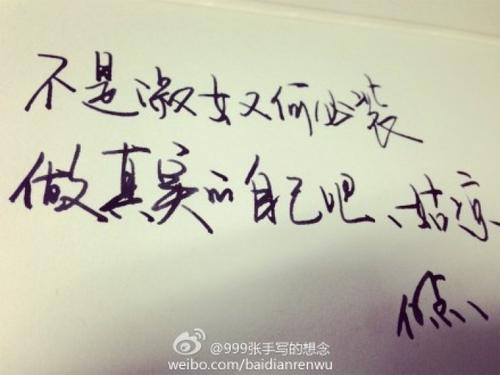 不是淑女又何必装
做真实的自己吧、姑凉
@999张手写的想念
weibo.com/baidianrenwu